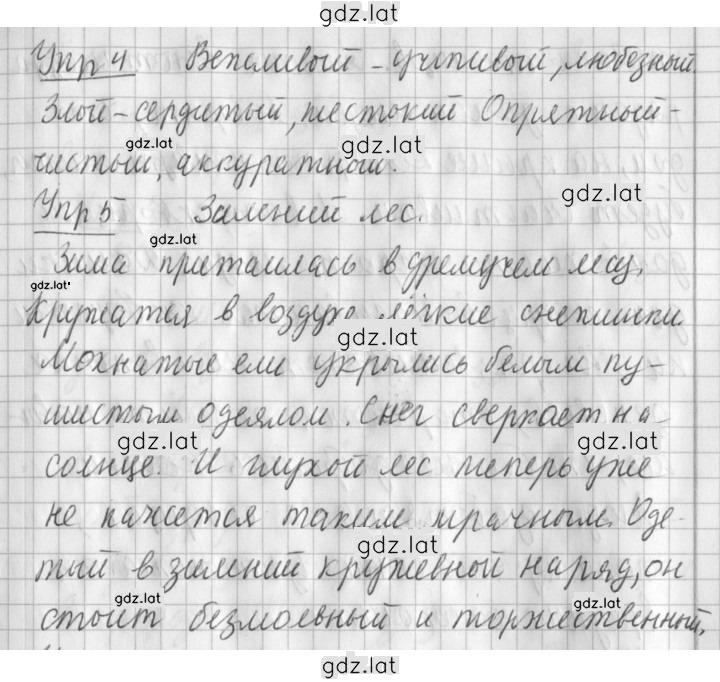 gdz.lat
Упр 4 Вепливый - учтивый, любезный.
Злой - сердитый, жестокий Опрятный -
gdz.lat gdz.lat
чистый, аккуратный.
gdz.lat
Упр 5 Зимний лес.
gdz.lat
Зима притаилась в дремучем лесу.
gdz.lat
Кружатся в воздухе лёгкие снежинки.
gdz.lat
Мохнатые ели укрылись белым пу-
шистым одеялом. Снег сверкает на
gdz.lat gdz.lat
солнце. И глухой лес теперь уже
не кажется таким мрачным. Оде-
gdz.lat
тый в зимний кружевной наряд, он
gdz.lat gdz.lat
стоит безмолвный и торжественный.
gdz.lat